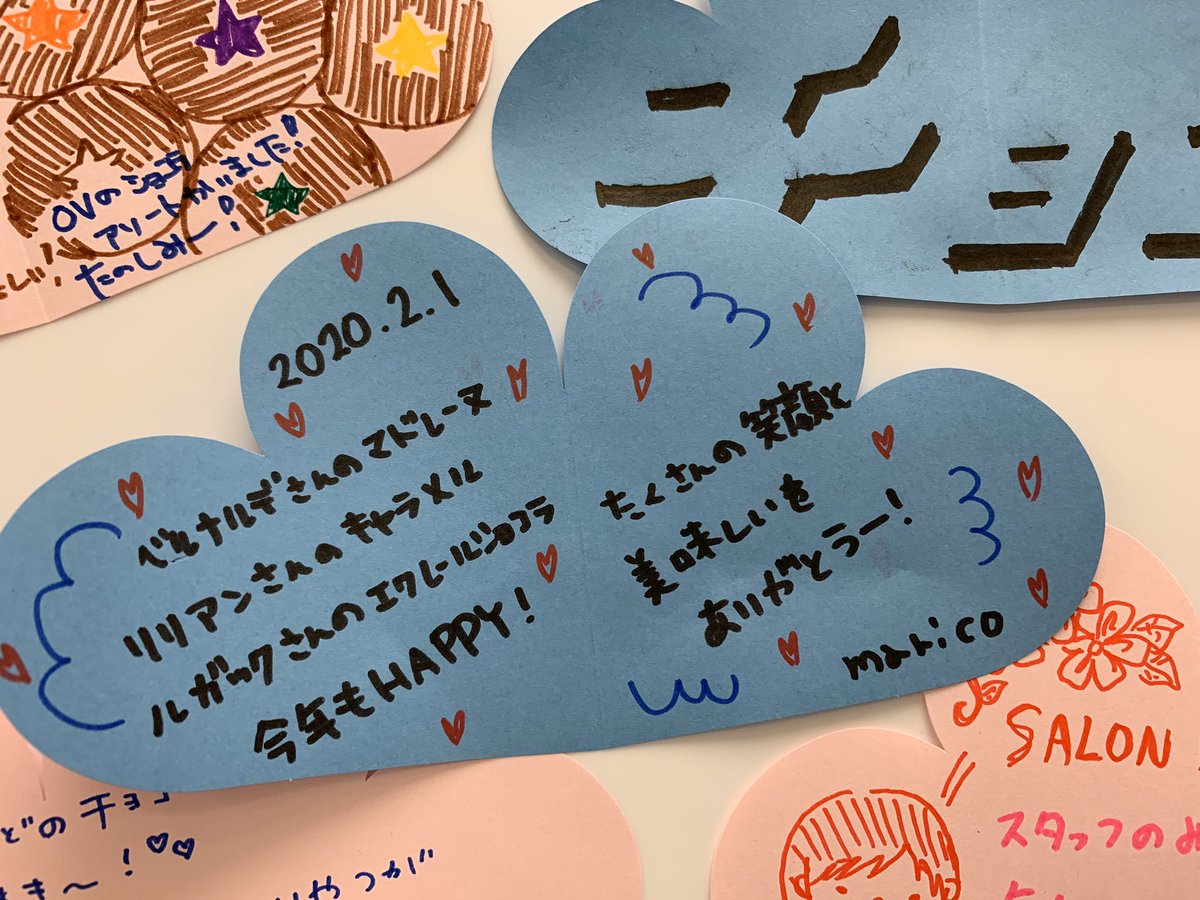 OVのショコラ
アソートかいました!
たのしみー!
2020.2.1
ベルナルデさんのマドレーヌ
リリアンさんのキャラメル
ルガックさんのエクレールショコラ
今年もHAPPY!
たくさんの笑顔と
美味しいを
ありがとうー!
marico
どのチョコ
き〜!
やつが
SALON
スタッフのみ